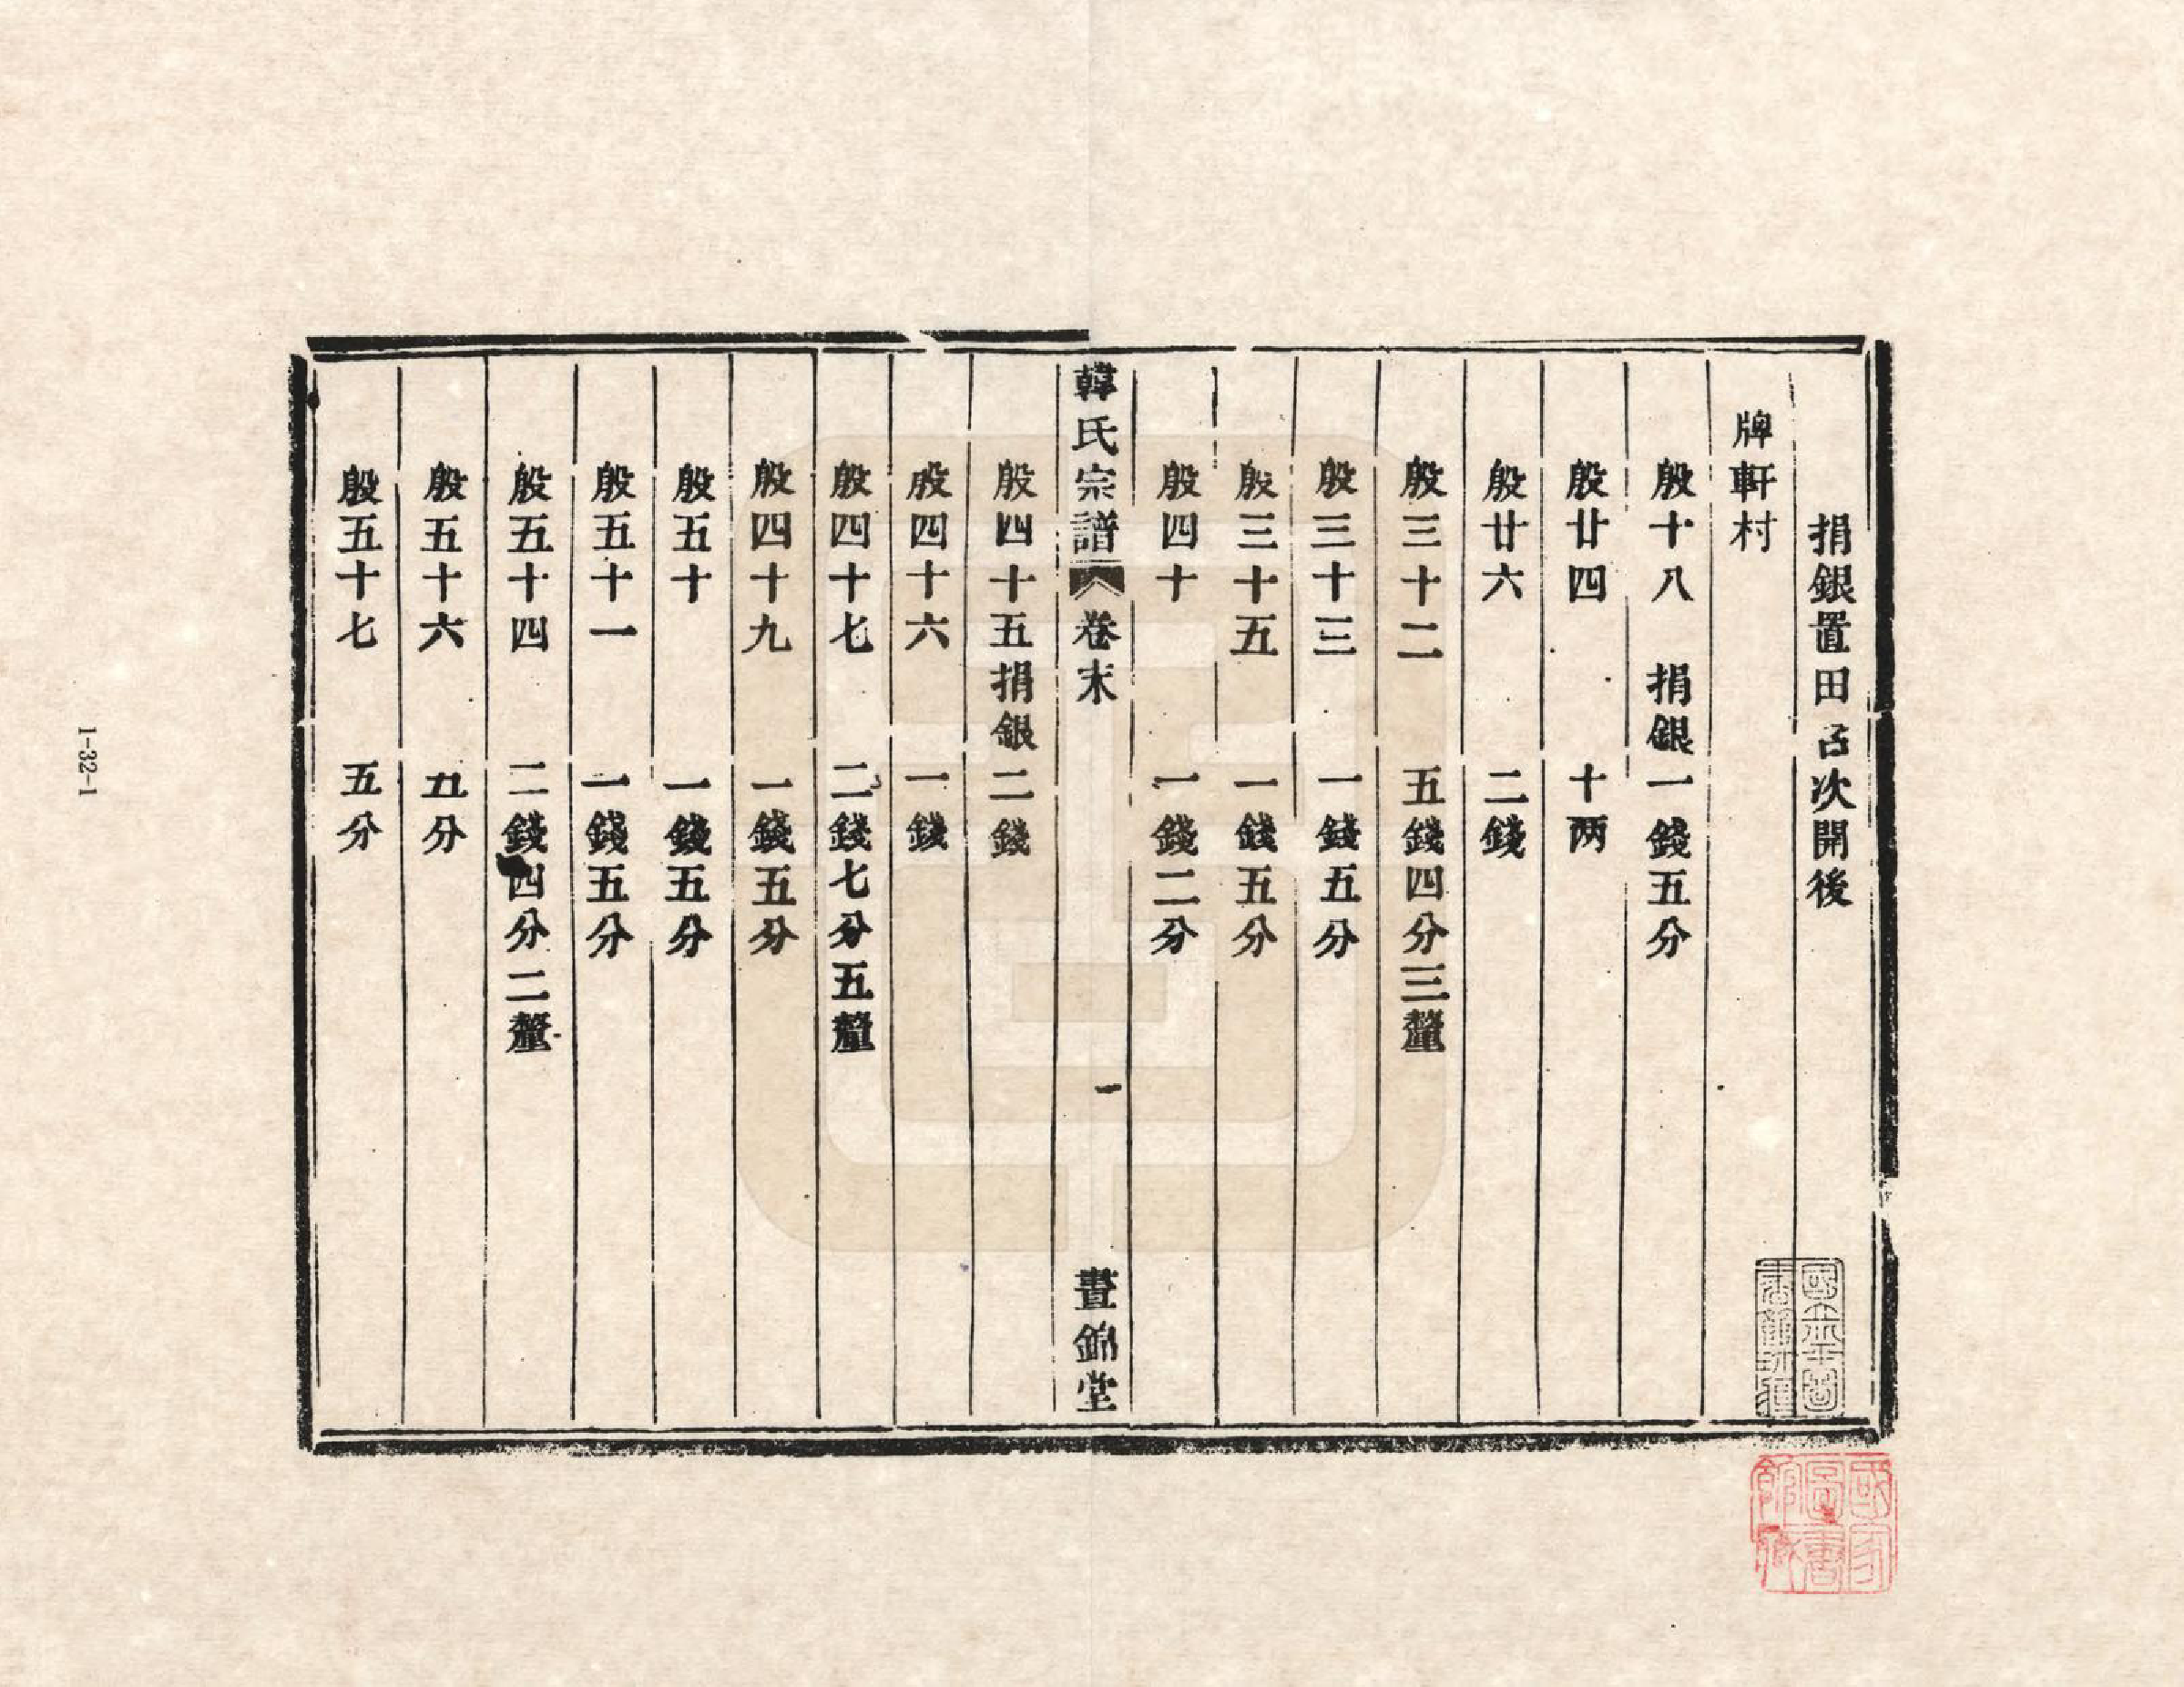 捐銀置田名次開後
牌軒村
殷十八 捐銀一錢五分
殷廿四 十两
殷廿六 二錢
殷三十二 五錢四分三釐
殷三十三 一錢五分
殷三十五 一錢五分
殷四十 一錢二分
韓氏宗譜 卷末 一 晝錦堂
殷四十五捐銀二錢
殷四十六 一錢
殷四十七 二錢七分五釐
殷四十九 一錢五分
殷五十 一錢五分
殷五十一 一錢五分
殷五十四 二錢四分二釐
殷五十六 五分
殷五十七 五分
國家圖書館藏
1-32-1